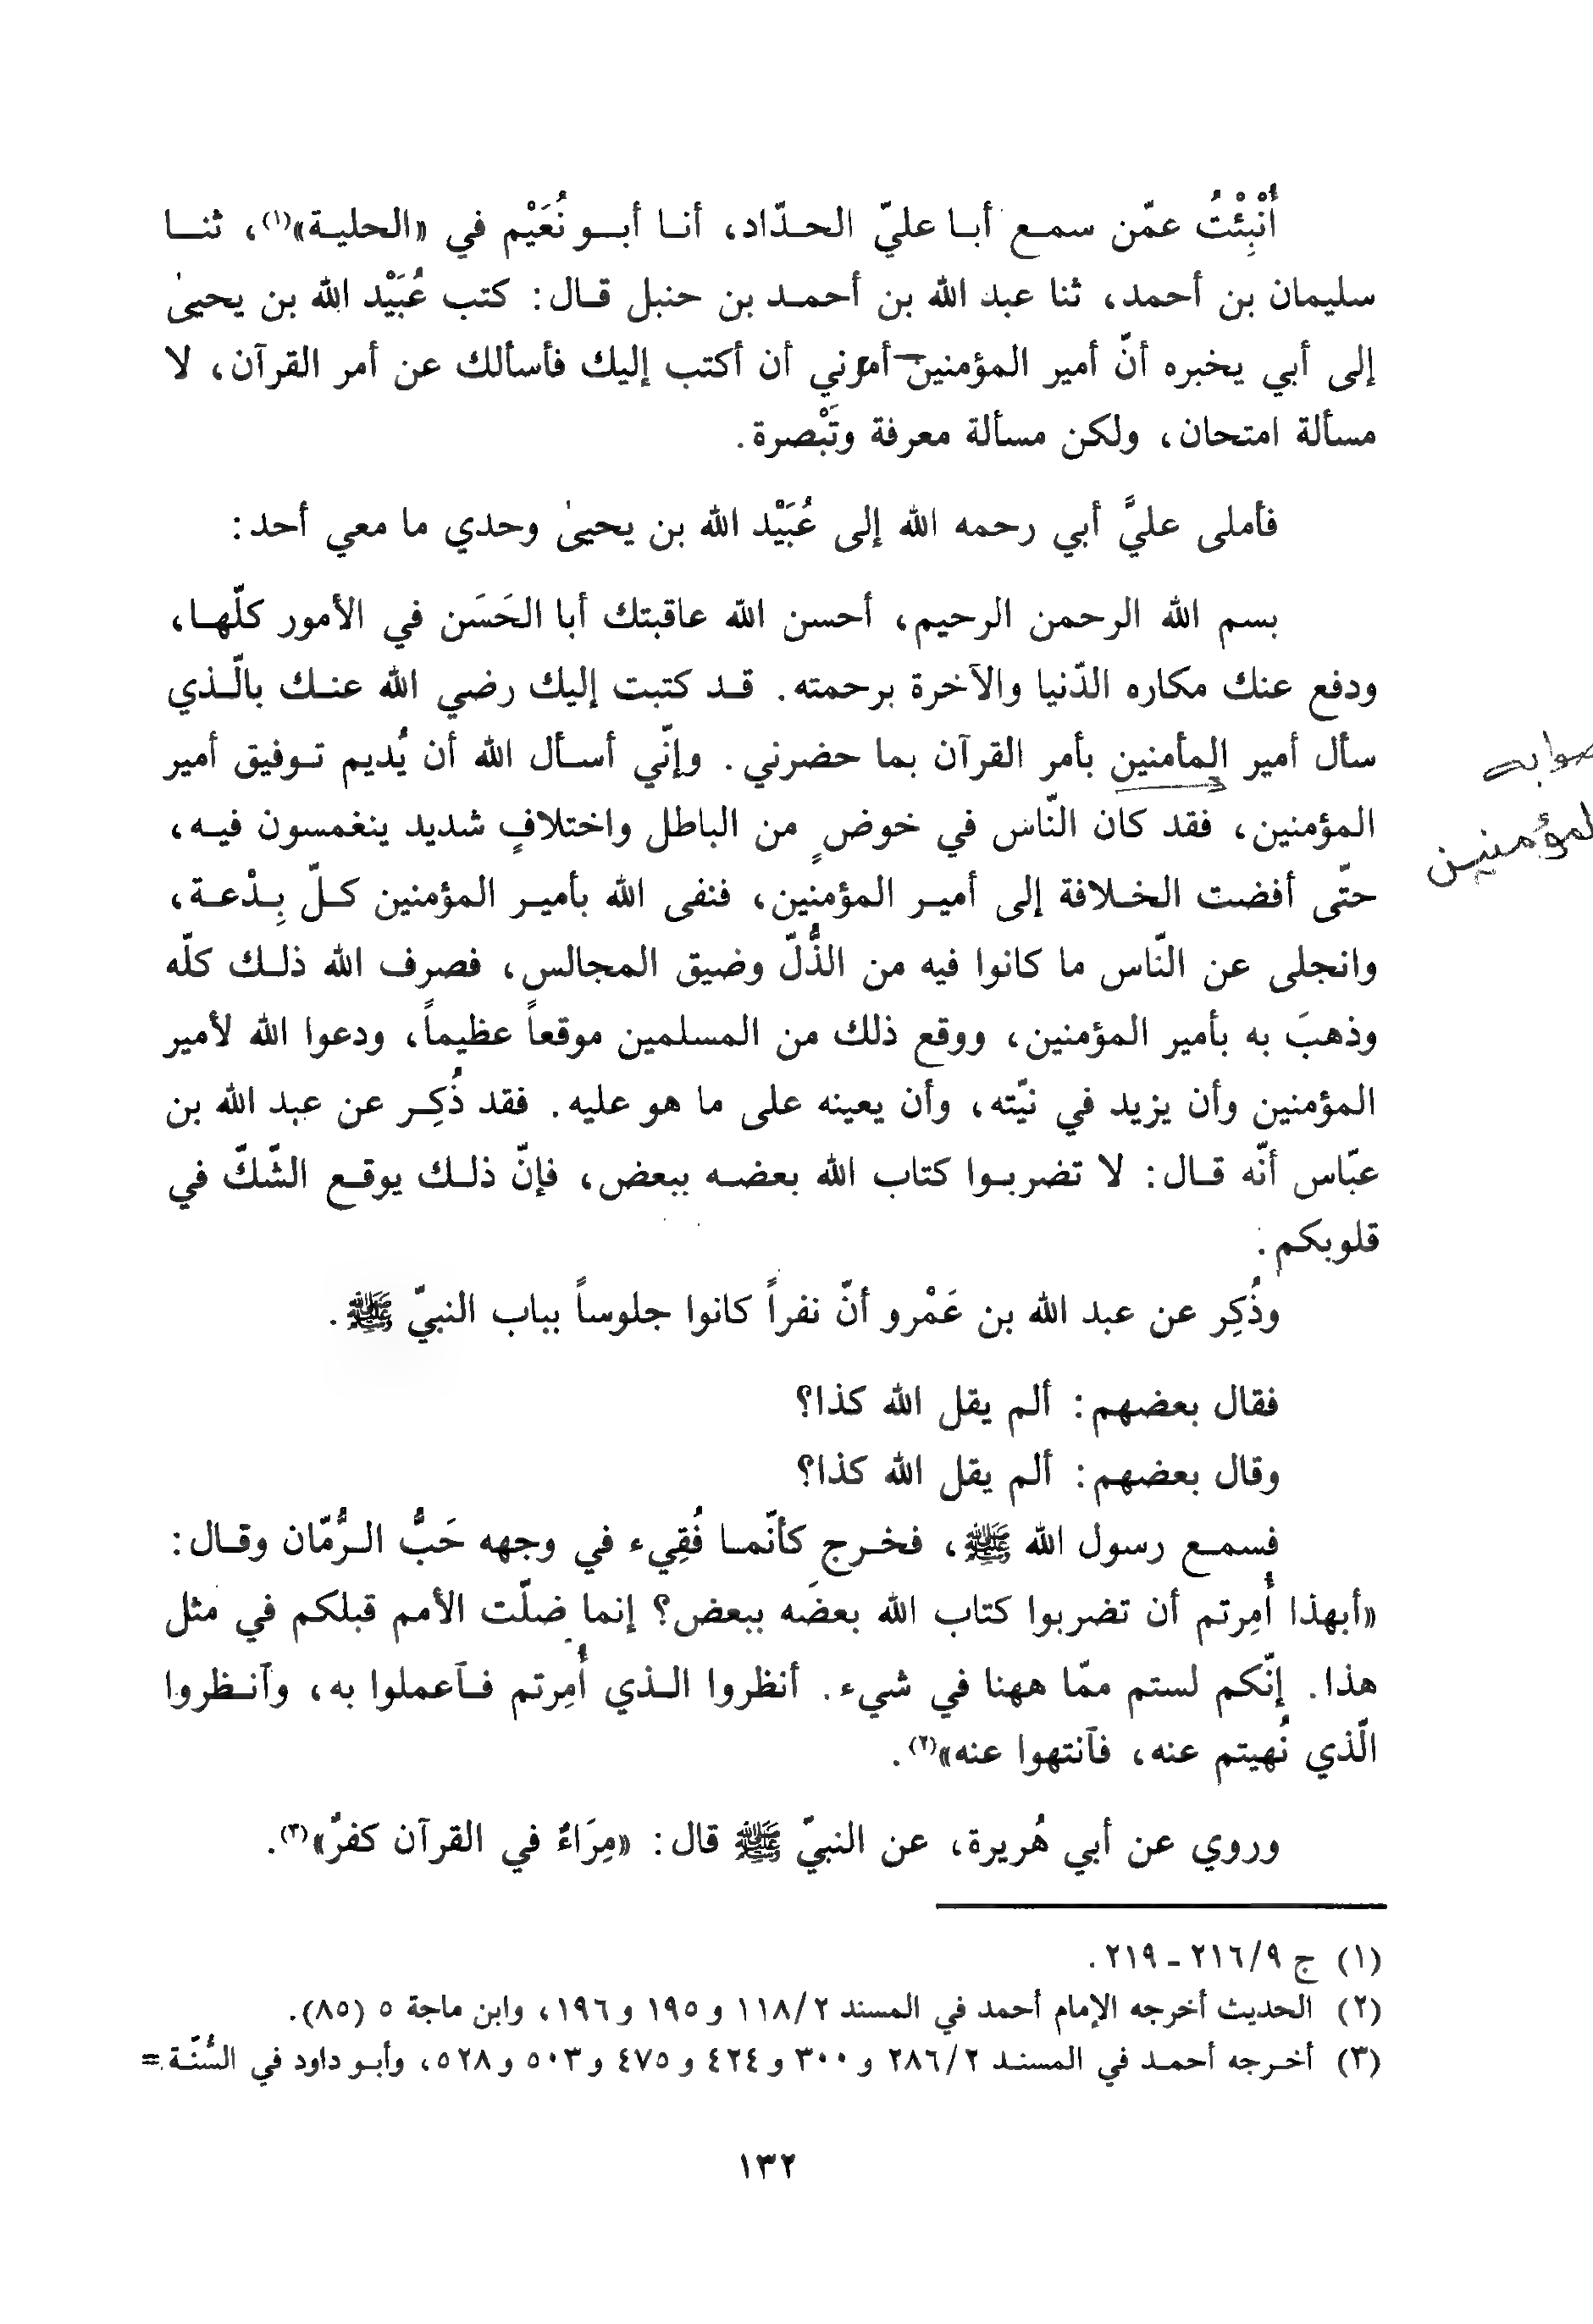 أُنْبِئْتُ عمّن سمع أبا عليّ الحدّاد، أنا أبو نُعَيْم في «الحلية»(١)، ثنا
سليمان بن أحمد، ثنا عبد الله بن أحمد بن حنبل قال: كتب عُبَيْد الله بن يحيىٰ
إلى أبي يخبره أنّ أمير المؤمنين أمرني أن أكتب إليك فأسألك عن أمر القرآن، لا
مسألة امتحان، ولكن مسألة معرفة وتَبْصرة.
فأملى عليَّ أبي رحمه الله إلى عُبَيْد الله بن يحيىٰ وحدي ما معي أحد:
بسم الله الرحمن الرحيم، أحسن الله عاقبتك أبا الحَسَن في الأمور كلّها،
ودفع عنك مكاره الدّنيا والآخرة برحمته. قد كتبت إليك رضي الله عنك بالّذي
سأل أمير المأمنين بأمر القرآن بما حضرني. وإنّي أسأل الله أن يُديم توفيق أمير
صوابه
المؤمنين، فقد كان النّاس في خوضٍ من الباطل واختلافٍ شديد ينغمسون فيه،
لمؤمنين
حتّى أفضت الخلافة إلى أمير المؤمنين، فنفى الله بأمير المؤمنين كلّ بِدْعة،
وانجلى عن النّاس ما كانوا فيه من الذُّلّ وضيق المجالس، فصرف الله ذلك كلّه
وذهبَ به بأمير المؤمنين، ووقع ذلك من المسلمين موقعاً عظيماً، ودعوا الله لأمير
المؤمنين وأن يزيد في نيّته، وأن يعينه على ما هو عليه. فقد ذُكِر عن عبد الله بن
عبّاس أنّه قال: لا تضربوا كتاب الله بعضه ببعض، فإنّ ذلك يوقع الشّكّ في
قلوبكم.
وذُكِر عن عبد الله بن عَمْرو أنّ نفراً كانوا جلوساً بباب النبيّ ﷺ.
فقال بعضهم: ألم يقل الله كذا؟
وقال بعضهم: ألم يقل الله كذا؟
فسمع رسول الله ﷺ، فخرج كأنّما فُقِيء في وجهه حَبُّ الرُّمّان وقال:
«أبهذا أُمِرتم أن تضربوا كتاب الله بعضَه ببعض؟ إنما ضلّت الأمم قبلكم في مثل
هذا. إنّكم لستم ممّا ههنا في شيء. أنظروا الذي أُمِرتم فٱعملوا به، وٱنظروا
الّذي نُهيتم عنه، فٱنتهوا عنه»(٢).
وروي عن أبي هُريرة، عن النبيّ ﷺ قال: «مِرَاءٌ في القرآن كفرٌ»(٣).
(١) ج ٢١٦/٩ - ٢١٩.
(٢) الحديث أخرجه الإمام أحمد في المسند ١١٨/٢ و ١٩٥ و ١٩٦، وابن ماجة ٥ (٨٥).
(٣) أخرجه أحمد في المسند ٢٨٦/٢ و ٣٠٠ و ٤٢٤ و ٤٧٥ و ٥٠٣ و ٥٢٨، وأبو داود في السُّنّة =
١٣٢